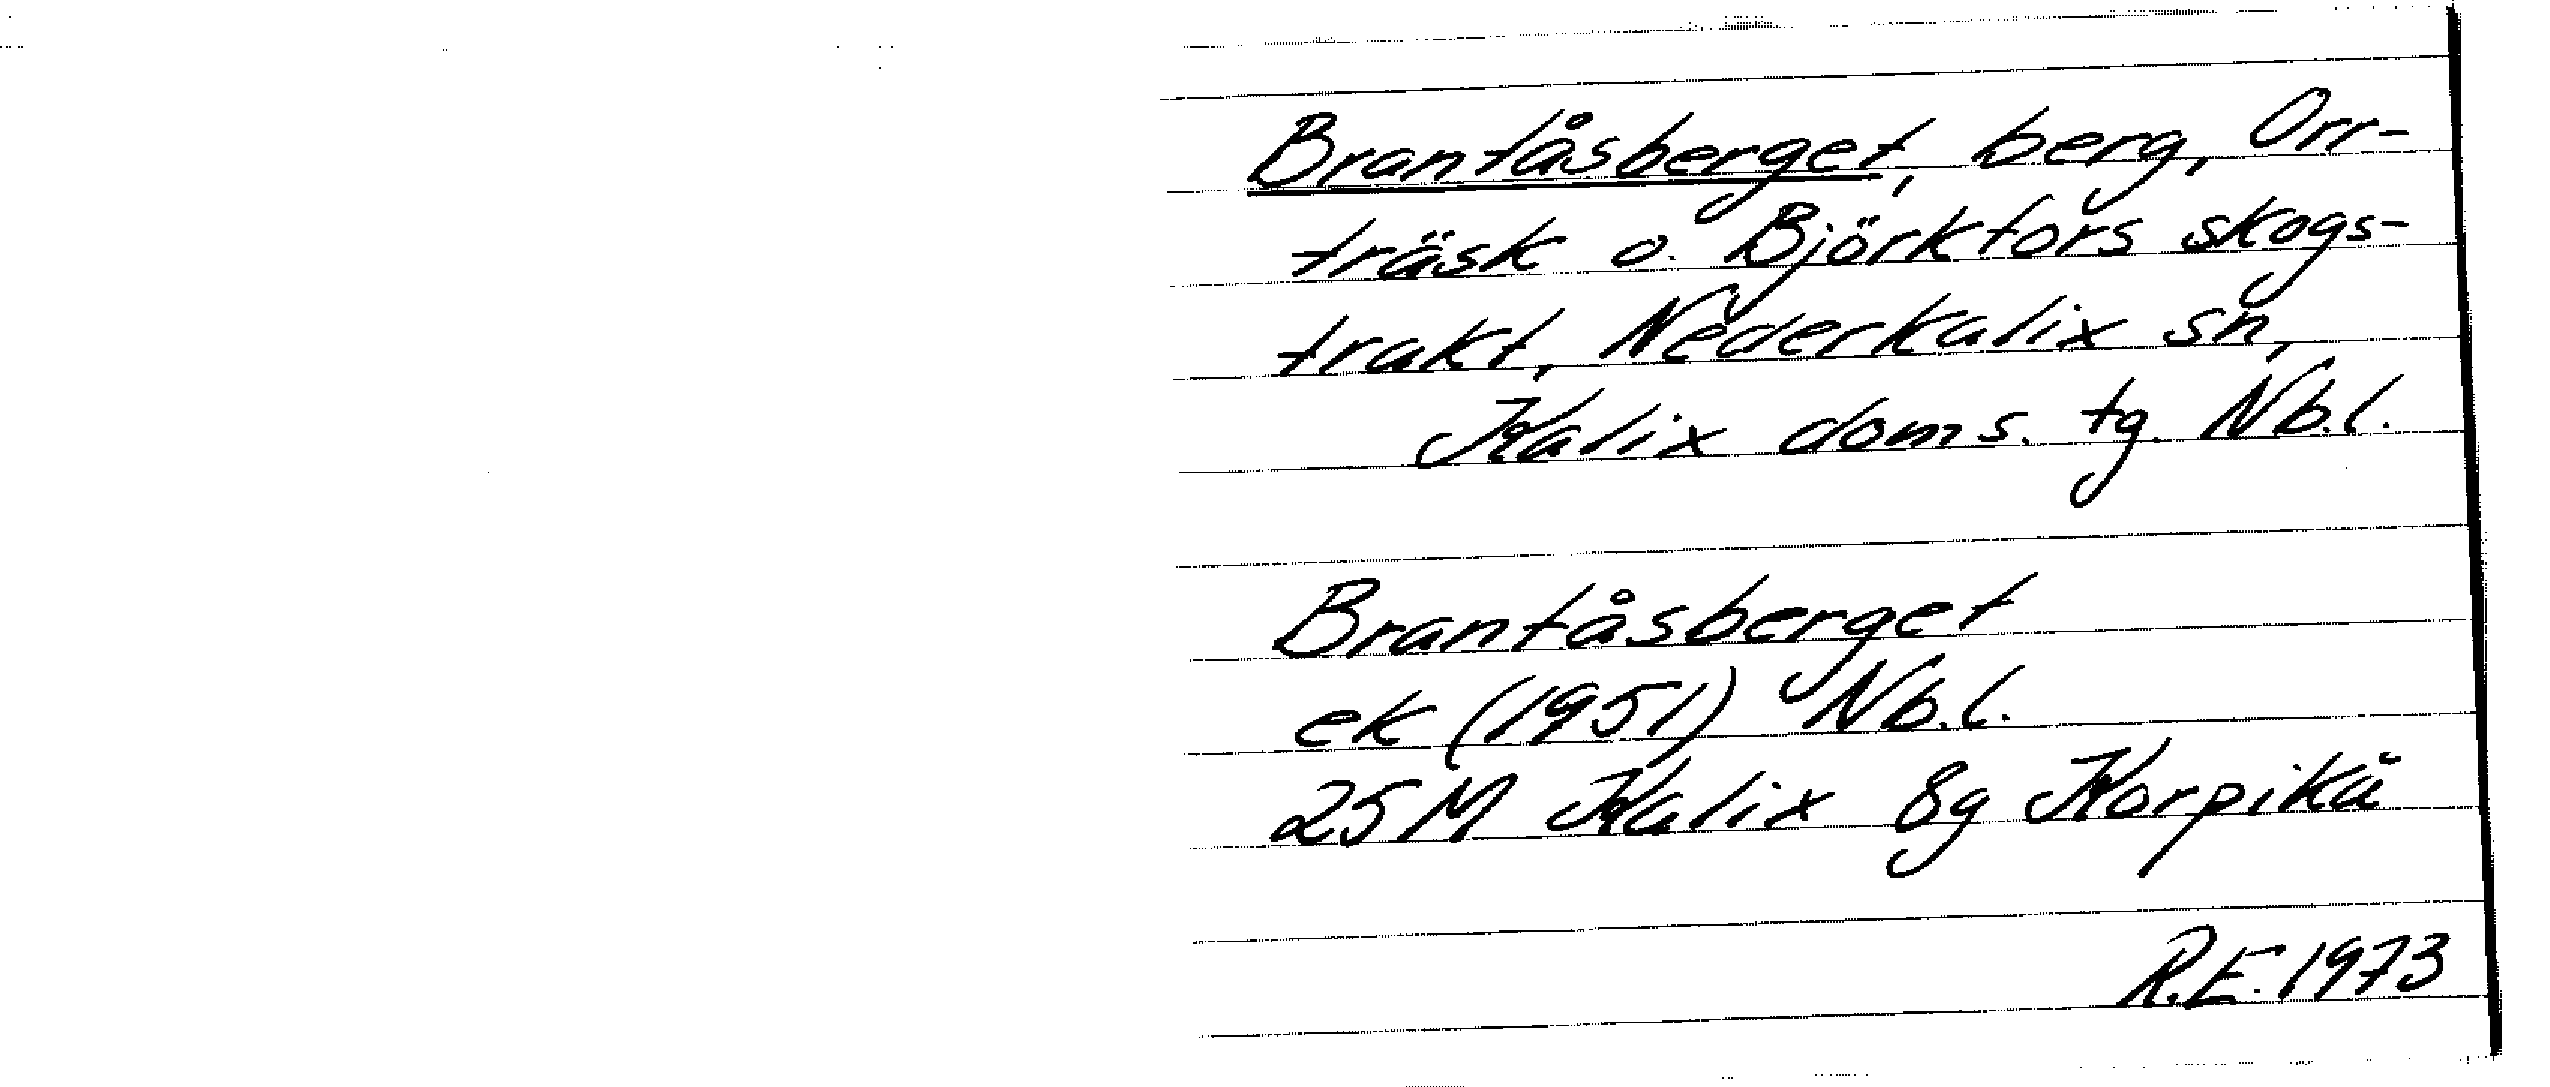 Brantåsberget, berg, Orr-
träsk o. Björkfors skogs-
trakt, Nederkalix sn,
Kalix doms. tg. Nb.l.
Brantåsberget
ek (1951) Nb.l.
25M Kalix 8g Korpikå
R.E. 1973